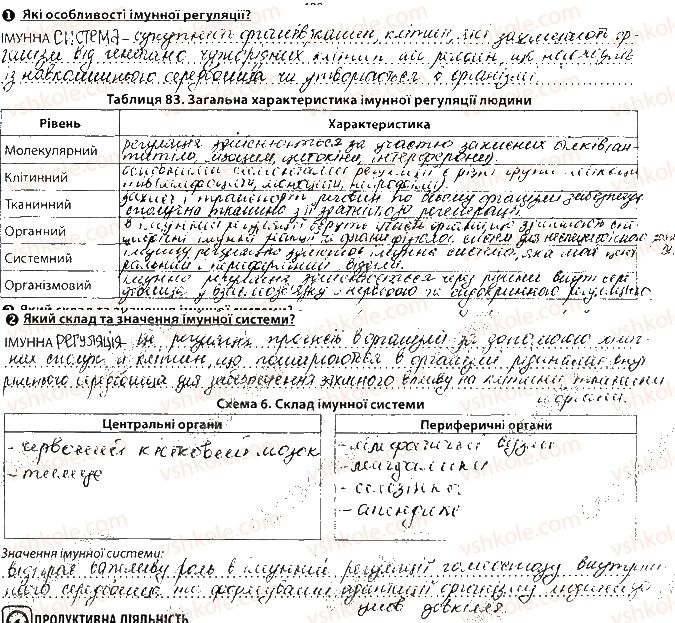 1 Які особливості імунної регуляції?
ІМУННА система - сукупність органів, тканин, клітин, які захищають ор-
ганізм від генетично чужорідних клітин або речовин, що надходять
із навколишнього середовища чи утворюються в організмі.
Таблиця 83. Загальна характеристика імунної регуляції людини
Рівень Характеристика
Молекулярний регуляція здійснюється за участю захисних білків (ан-
титіла, лізоцим, цитокіни, інтерферони).
Клітинний основними елементами регуляції є різні групи лейкоци-
тів (лімфоцити, моноцити, нейрофіли).
Тканинний захист і транспорт речовин по всьому організмі забезпечує
сполучна тканина з її здатністю регенерації.
Органний в імунній регуляції беруть участь органи
імунної органи фізіол. систем для неспецифічного
Системний імунну регуляцію здійснює імунна система, яка має цент-
ральний і периферійний відділи.
Організмовий імунна регуляція здійснюється через рідини внутр. сере-
довища у взаємозв'язку з нервовою та ендокринною регуляцією
2 Який склад та значення імунної системи?
ІМУННА регуляція це регуляція процесів в організмі за допомогою імун-
них сполук й клітин, що поширюються в організмі рідинами внут-
рішнього середовища для забезпечення захисного впливу на клітини, тканини
й органи.
Схема 6. Склад імунної системи
Центральні органи Периферичні органи
- червоний кістковий мозок
- тимус
- лімфатичні вузли
- мигдалики
- селезінка
- апендикс
Значення імунної системи:
відіграє важливу роль в імунній регуляції гомеостазу внутрішньо-
го середовища та формуванні адаптації організму людини до
умов довкілля.
ПРОДУКТИВНА ДІЯЛЬНІСТЬ
vshkole.com